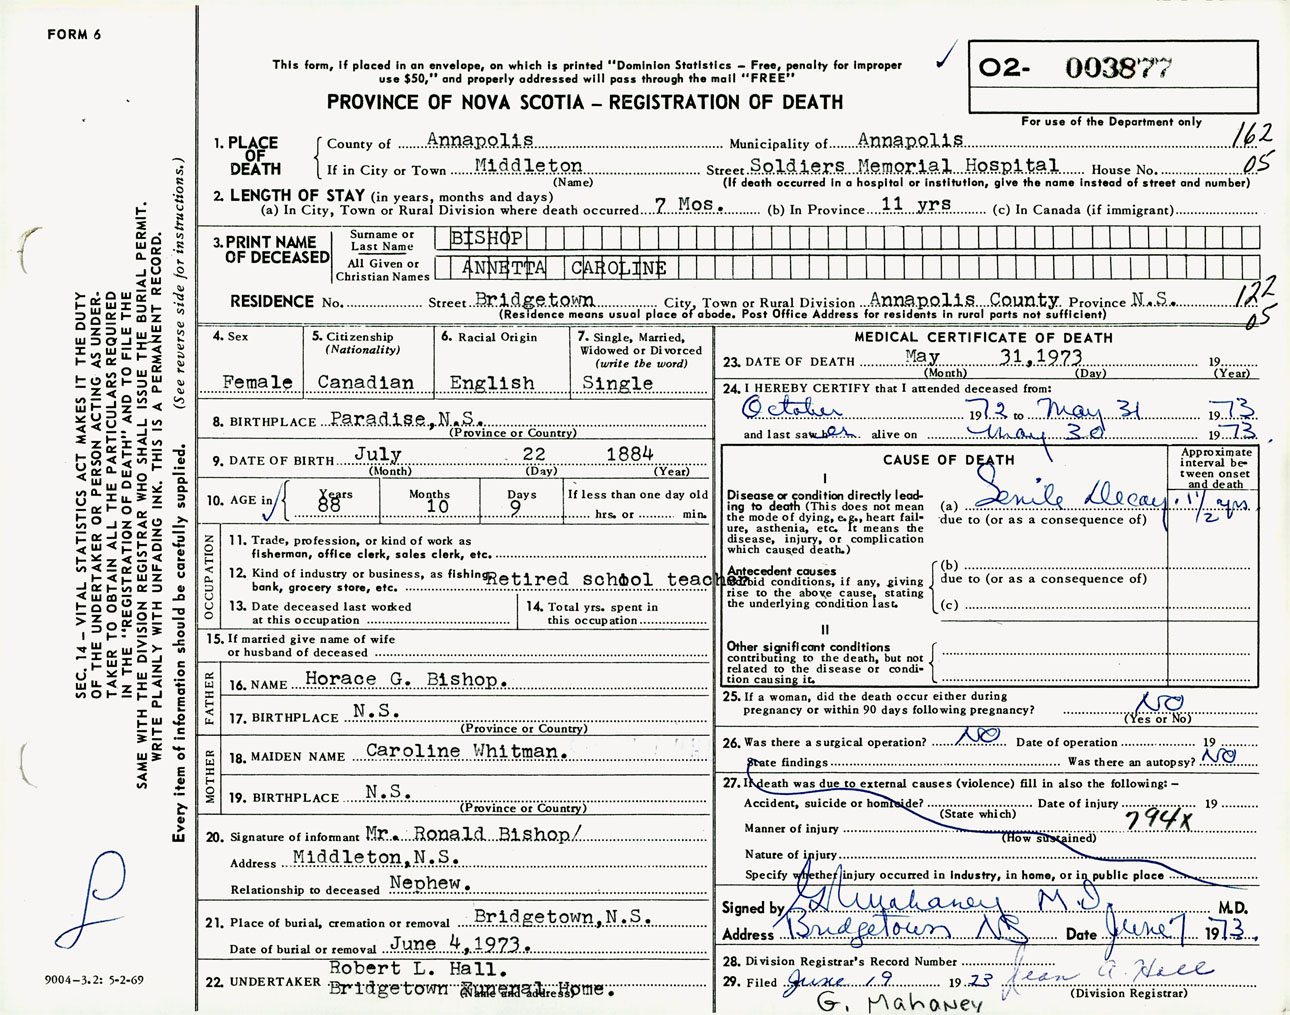 FORM 6
This form, if placed in an envelope, on which is printed "Dominion Statistics – Free, penalty for improper
use $50," and properly addressed will pass through the mail "FREE"
PROVINCE OF NOVA SCOTIA – REGISTRATION OF DEATH
02- 003877
For use of the Department only
SEC. 14 – VITAL STATISTICS ACT MAKES IT THE DUTY
OF THE UNDERTAKER OR PERSON ACTING AS UNDER-
TAKER TO OBTAIN ALL THE PARTICULARS REQUIRED
IN THE "REGISTRATION OF DEATH" AND TO FILE THE
SAME WITH THE DIVISION REGISTRAR WHO SHALL ISSUE THE BURIAL PERMIT.
WRITE PLAINLY WITH UNFADING INK. THIS IS A PERMANENT RECORD.
Every item of information should be carefully supplied. (See reverse side for instructions.)
1. PLACE OF DEATH
County of Annapolis Municipality of Annapolis 162
If in City or Town Middleton Street Soldiers Memorial Hospital House No. 05
(Name) (If death occurred in a hospital or institution, give the name instead of street and number)
2. LENGTH OF STAY (in years, months and days)
(a) In City, Town or Rural Division where death occurred 7 Mos. (b) In Province 11 yrs (c) In Canada (if immigrant)
3. PRINT NAME OF DECEASED
Surname or Last Name BISHOP
All Given or Christian Names ANNETTA CAROLINE
RESIDENCE No. Street Bridgetown City, Town or Rural Division Annapolis County Province N.S. 122
(Residence means usual place of abode. Post Office Address for residents in rural parts not sufficient) 05
4. Sex 5. Citizenship (Nationality) 6. Racial Origin 7. Single, Married, Widowed or Divorced (write the word)
Female Canadian English Single
8. BIRTHPLACE Paradise, N.S.
(Province or Country)
9. DATE OF BIRTH July 22 1884
(Month) (Day) (Year)
10. AGE in Years Months Days If less than one day old
88 10 9 hrs. or min.
OCCUPATION
11. Trade, profession, or kind of work as
fisherman, office clerk, sales clerk, etc.
12. Kind of industry or business, as fishing, Retired school teacher
bank, grocery store, etc.
13. Date deceased last worked at this occupation
14. Total yrs. spent in this occupation
15. If married give name of wife
or husband of deceased
FATHER
16. NAME Horace G. Bishop.
17. BIRTHPLACE N.S.
(Province or Country)
MOTHER
18. MAIDEN NAME Caroline Whitman.
19. BIRTHPLACE N.S.
(Province or Country)
20. Signature of informant Mr. Ronald Bishop/
Address Middleton, N.S.
Relationship to deceased Nephew.
21. Place of burial, cremation or removal Bridgetown, N.S.
Date of burial or removal June 4, 1973.
Robert L. Hall.
22. UNDERTAKER Bridgetown Funeral Home.
(Name and address)
MEDICAL CERTIFICATE OF DEATH
23. DATE OF DEATH May 31, 1973 19
(Month) (Day) (Year)
24. I HEREBY CERTIFY that I attended deceased from:
October 1972 to May 31 1973
and last saw her alive on May 30 1973.
CAUSE OF DEATH
Approximate interval between onset and death
I
Disease or condition directly lead-
ing to death (This does not mean
the mode of dying, e.g., heart fail-
ure, asthenia, etc. It means the
disease, injury, or complication
which caused death.)
(a) Senile Decay. 1 1/2 yrs.
due to (or as a consequence of)
Antecedent causes
Morbid conditions, if any, giving
rise to the above cause, stating
the underlying condition last.
(b)
due to (or as a consequence of)
(c)
II
Other significant conditions
contributing to the death, but not
related to the disease or condi-
tion causing it.
25. If a woman, did the death occur either during
pregnancy or within 90 days following pregnancy? NO
(Yes or No)
26. Was there a surgical operation? NO Date of operation 19
State findings Was there an autopsy? NO
27. If death was due to external causes (violence) fill in also the following: –
Accident, suicide or homicide? Date of injury 19
(State which)
Manner of injury 794X
(How sustained)
Nature of injury
Specify whether injury occurred in industry, in home, or in public place
Signed by G Mahaney M.D. M.D.
Address Bridgetown NS Date June 7 1973.
28. Division Registrar's Record Number
29. Filed June 19 1973 Jean A. Hall
(Division Registrar)
G. Mahaney
9004-3.2: 5-2-69